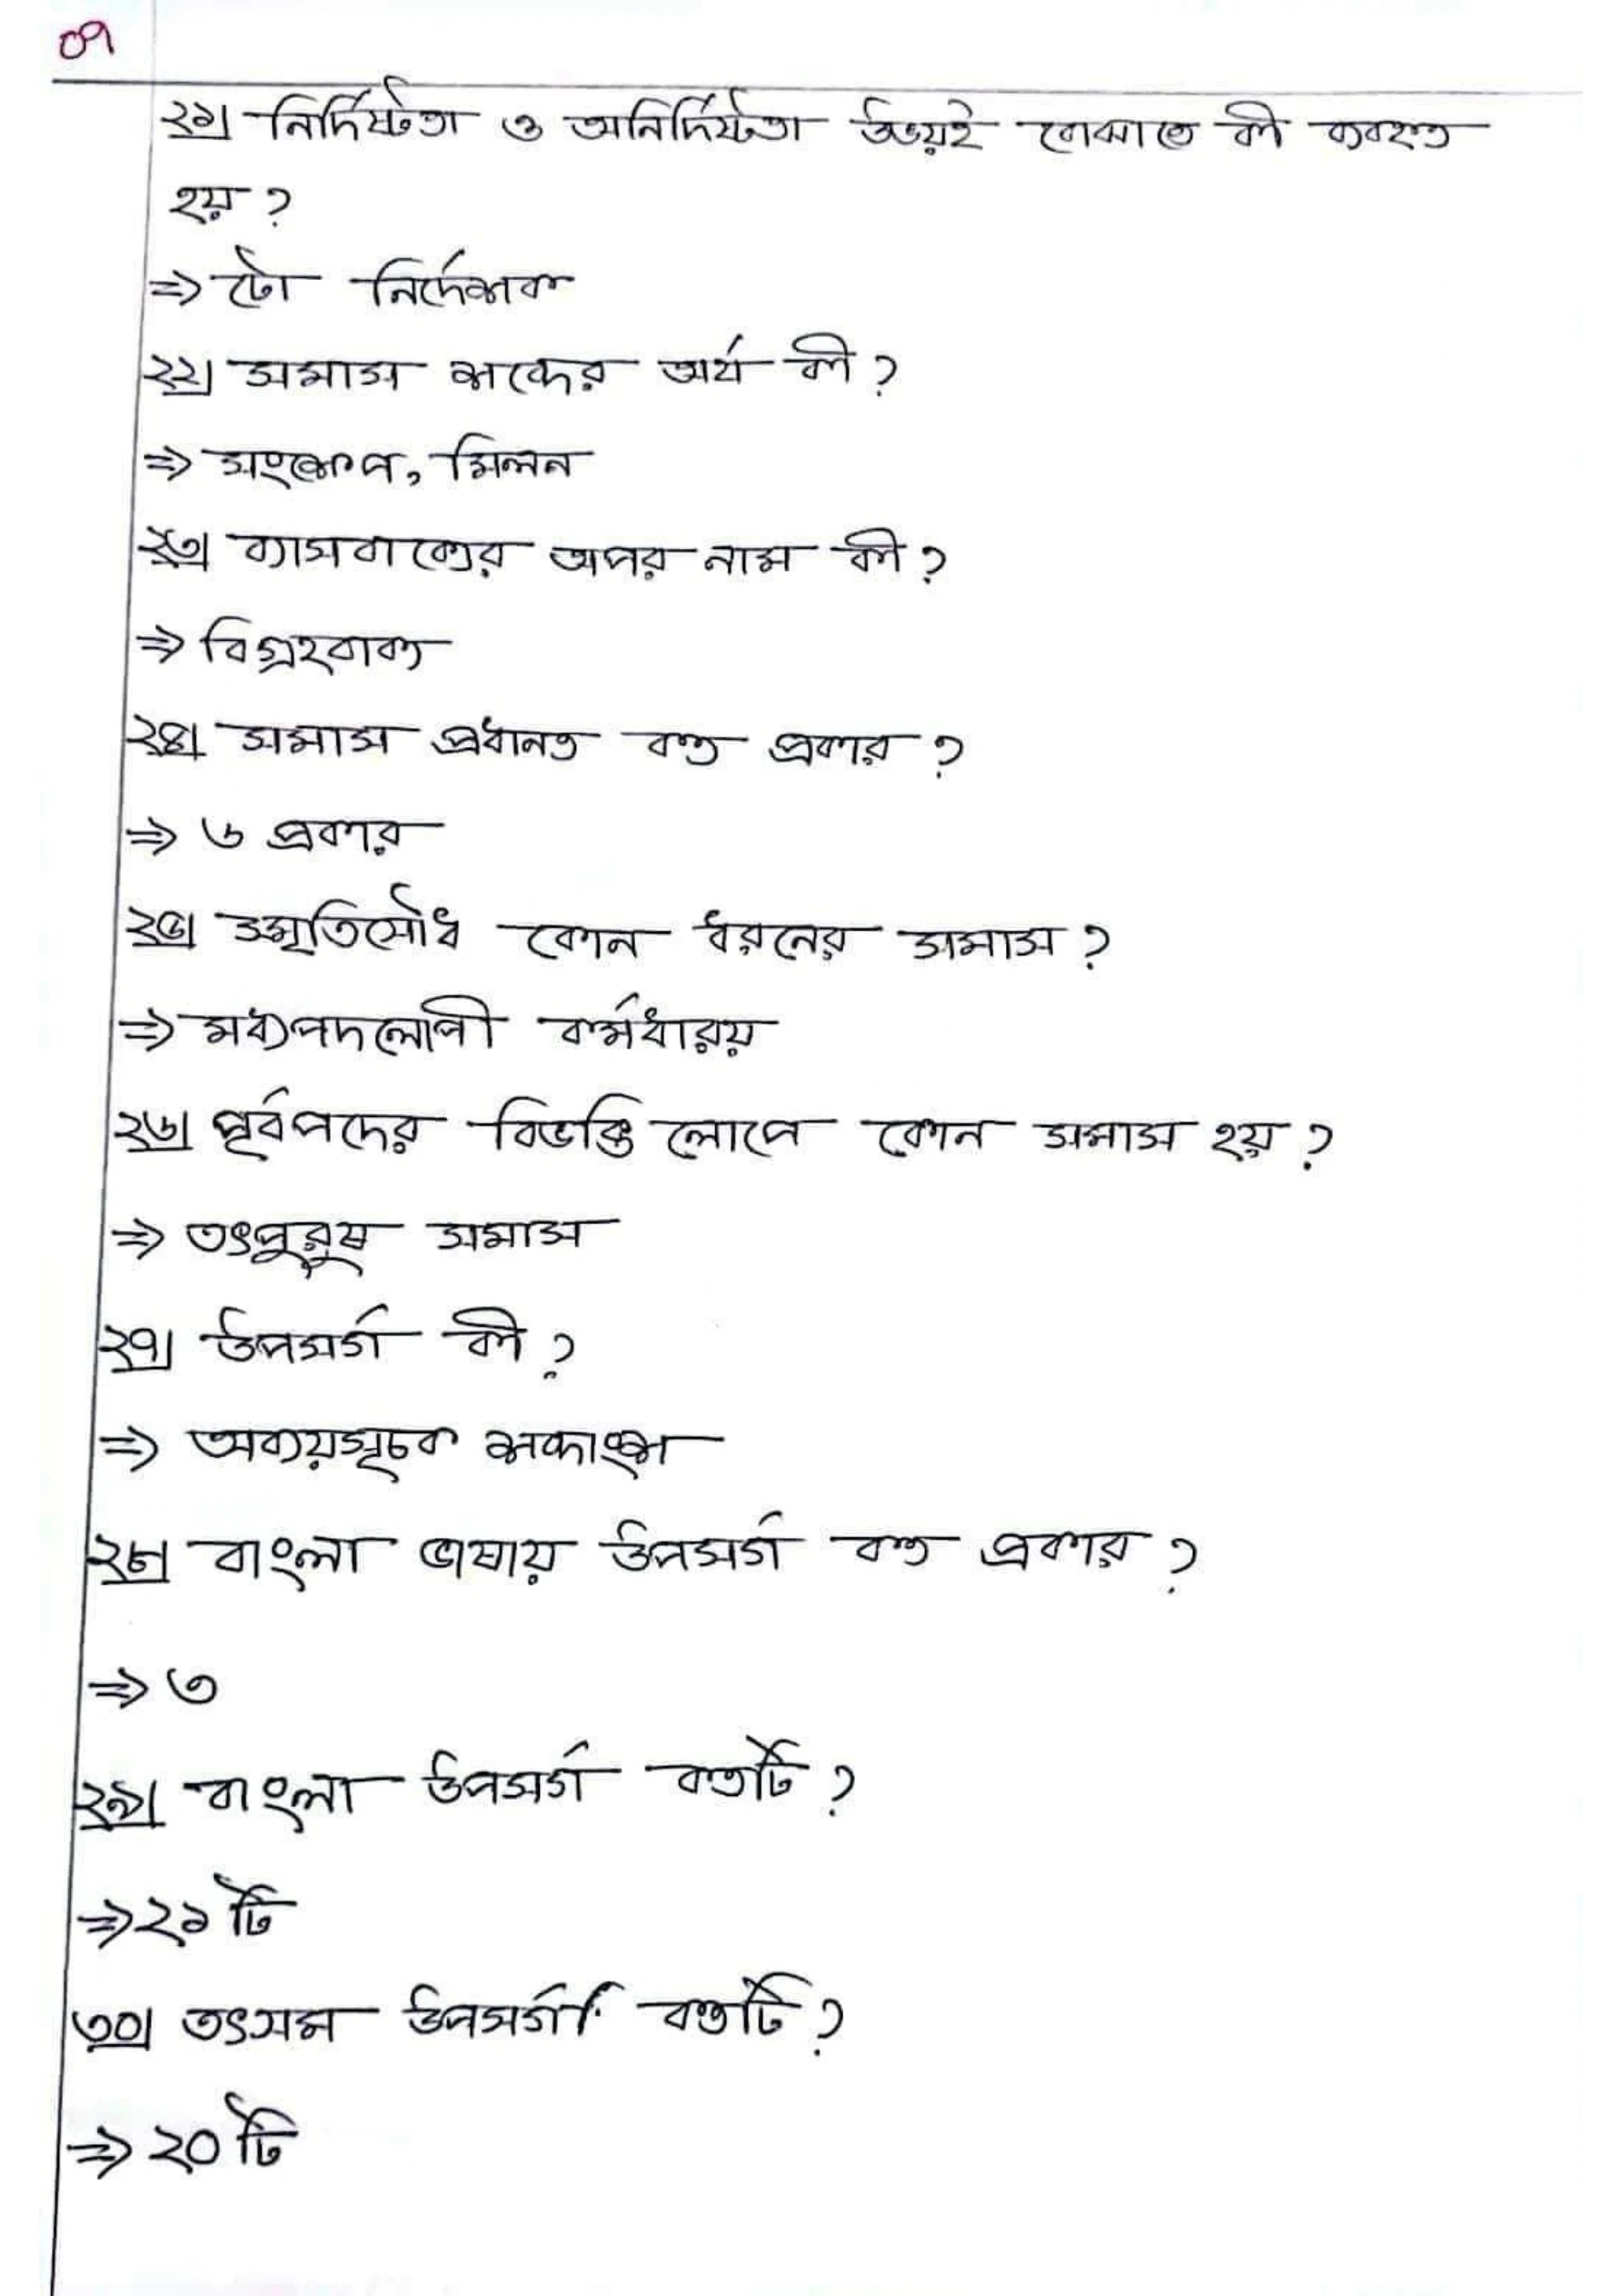 ০৭
২১। নির্দিষ্টতা ও অনির্দিষ্টতা উভয়ই বোঝাতে কী ব্যবহৃত
হয়?
⇒ টো নির্দেশক
২২। সমাস শব্দের অর্থ কী?
⇒ সংক্ষেপ, মিলন
২৩। ব্যাসবাক্যের অপর নাম কী?
⇒ বিগ্রহবাক্য
২৪। সমাস প্রধানত কত প্রকার?
⇒ ৬ প্রকার
২৫। স্মৃতিসৌধ কোন ধরনের সমাস?
⇒ মধ্যপদলোপী কর্মধারয়
২৬। পূর্বপদের বিভক্তি লোপে কোন সমাস হয়?
⇒ তৎপুরুষ সমাস
২৭। উপসর্গ কী?
⇒ অব্যয়সূচক শব্দাংশ
২৮। বাংলা ভাষায় উপসর্গ কত প্রকার?
⇒ ৩
২৯। বাংলা উপসর্গ কতটি?
⇒ ২১ টি
৩০। তৎসম উপসর্গ কতটি?
⇒ ২০ টি